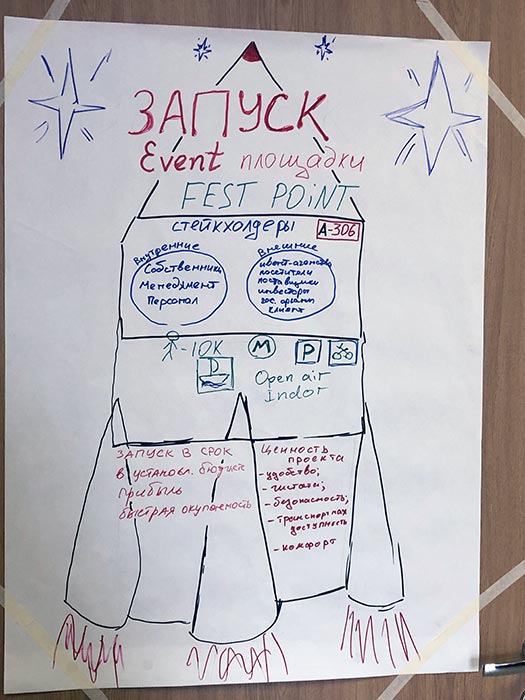 ЗАПУСК
Event площадки
FEST POINT
стейкхолдеры
А-306
Внутренние
Собственники
Менеджмент
Персонал
Внешние
ивент-агентства
посетители
поставщики
инвесторы
гос. органы
клиент
-10К
М
P
Open air
Indor
ЗАПУСК В СРОК
в установл. бюджете
прибыль
быстрая окупаемость
Ценность
проекта
- удобство;
- чистота;
- безопасность;
- транспортная
доступность
- комфорт